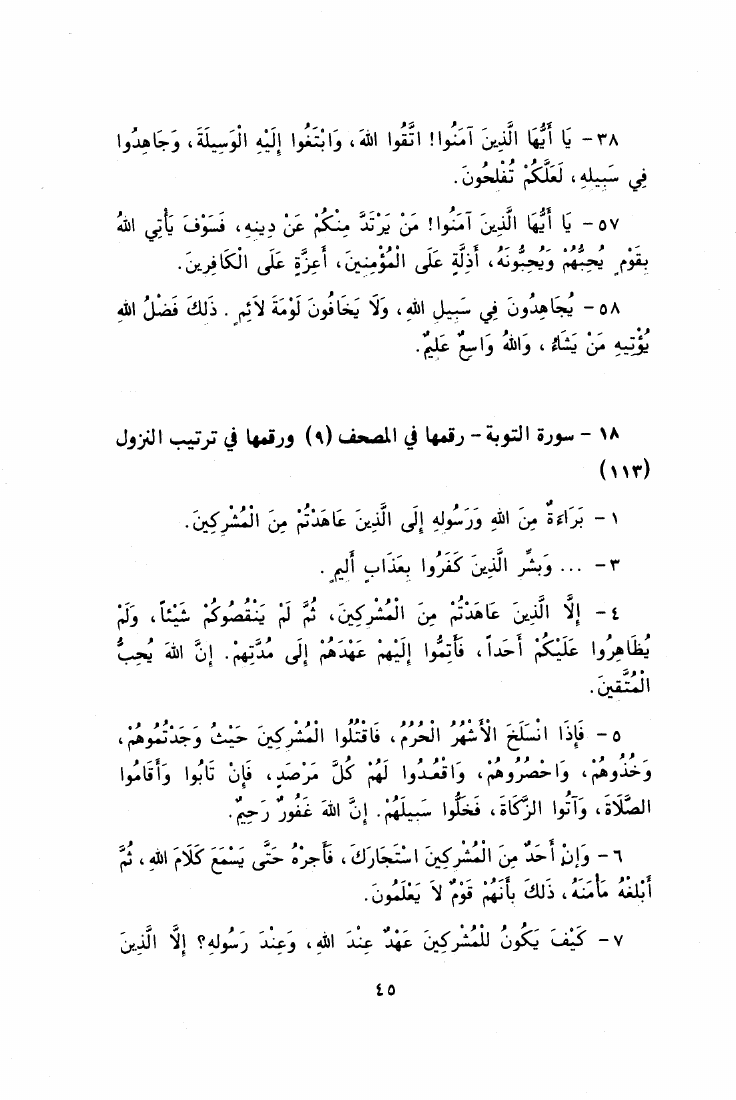 ٣٨ – يَا أَيُّهَا الَّذِينَ آمَنُوا! اتَّقُوا اللهَ، وَابْتَغُوا إِلَيْهِ الْوَسِيلَةَ، وَجَاهِدُوا
فِي سَبِيلِهِ، لَعَلَّكُمْ تُفْلِحُونَ.
٥٧ – يَا أَيُّهَا الَّذِينَ آمَنُوا! مَنْ يَرْتَدَّ مِنْكُمْ عَنْ دِينِهِ، فَسَوْفَ يَأْتِي اللهُ
بِقَوْمٍ يُحِبُّهُمْ وَيُحِبُّونَهُ، أَذِلَّةٍ عَلَى الْمُؤْمِنِينَ، أَعِزَّةٍ عَلَى الْكَافِرِينَ.
٥٨ – يُجَاهِدُونَ فِي سَبِيلِ اللهِ، وَلَا يَخَافُونَ لَوْمَةَ لاَئِمٍ. ذَلِكَ فَضْلُ اللهِ
يُؤْتِيهِ مَنْ يَشَاءُ، وَاللهُ وَاسِعٌ عَلِيمٌ.
١٨ – سورة التوبة – رقمها في المصحف (٩) ورقمها في ترتيب النزول
(١١٣)
١ – بَرَاءَةٌ مِنَ اللهِ وَرَسُولِهِ إِلَى الَّذِينَ عَاهَدْتُمْ مِنَ الْمُشْرِكِينَ.
٣ – ... وَبَشِّرِ الَّذِينَ كَفَرُوا بِعَذَابٍ أَلِيمٍ.
٤ – إِلَّا الَّذِينَ عَاهَدْتُمْ مِنَ الْمُشْرِكِينَ، ثُمَّ لَمْ يَنْقُصُوكُمْ شَيْئاً، وَلَمْ
يُظَاهِرُوا عَلَيْكُمْ أَحَداً، فَأَتِمُّوا إِلَيْهِمْ عَهْدَهُمْ إِلَى مُدَّتِهِمْ. إِنَّ اللهَ يُحِبُّ
الْمُتَّقِينَ.
٥ – فَإِذَا انْسَلَخَ الْأَشْهُرُ الْحُرُمُ، فَاقْتُلُوا الْمُشْرِكِينَ حَيْثُ وَجَدْتُمُوهُمْ،
وَخُذُوهُمْ، وَاحْصُرُوهُمْ، وَاقْعُدُوا لَهُمْ كُلَّ مَرْصَدٍ، فَإِنْ تَابُوا وَأَقَامُوا
الصَّلَاةَ، وَآتُوا الزَّكَاةَ، فَخَلُّوا سَبِيلَهُمْ. إِنَّ اللهَ غَفُورٌ رَحِيمٌ.
٦ – وَإِنْ أَحَدٌ مِنَ الْمُشْرِكِينَ اسْتَجَارَكَ، فَأَجِرْهُ حَتَّى يَسْمَعَ كَلَامَ اللهِ، ثُمَّ
أَبْلِغْهُ مَأْمَنَهُ، ذَلِكَ بِأَنَّهُمْ قَوْمٌ لاَ يَعْلَمُونَ.
٧ – كَيْفَ يَكُونُ لِلْمُشْرِكِينَ عَهْدٌ عِنْدَ اللهِ، وَعِنْدَ رَسُولِهِ؟ إِلَّا الَّذِينَ
٤٥